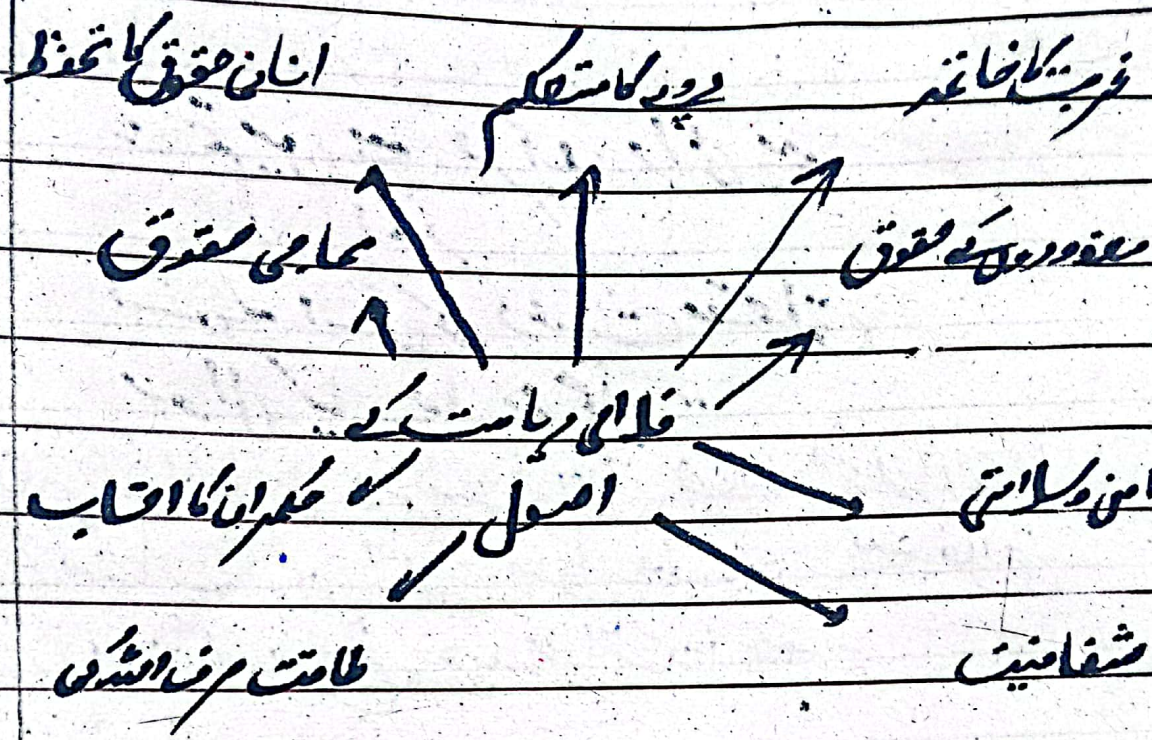 غربت کا خاتمہ
کا
انسانی حقوق کا تحفظ
معذوروں کے حقوق
سماجی حقوق
فلاحی ریاست کے
اصول
امن و سلامتی
حکمران کا احتساب
شفافیت
طاقت صرف اللہ کی